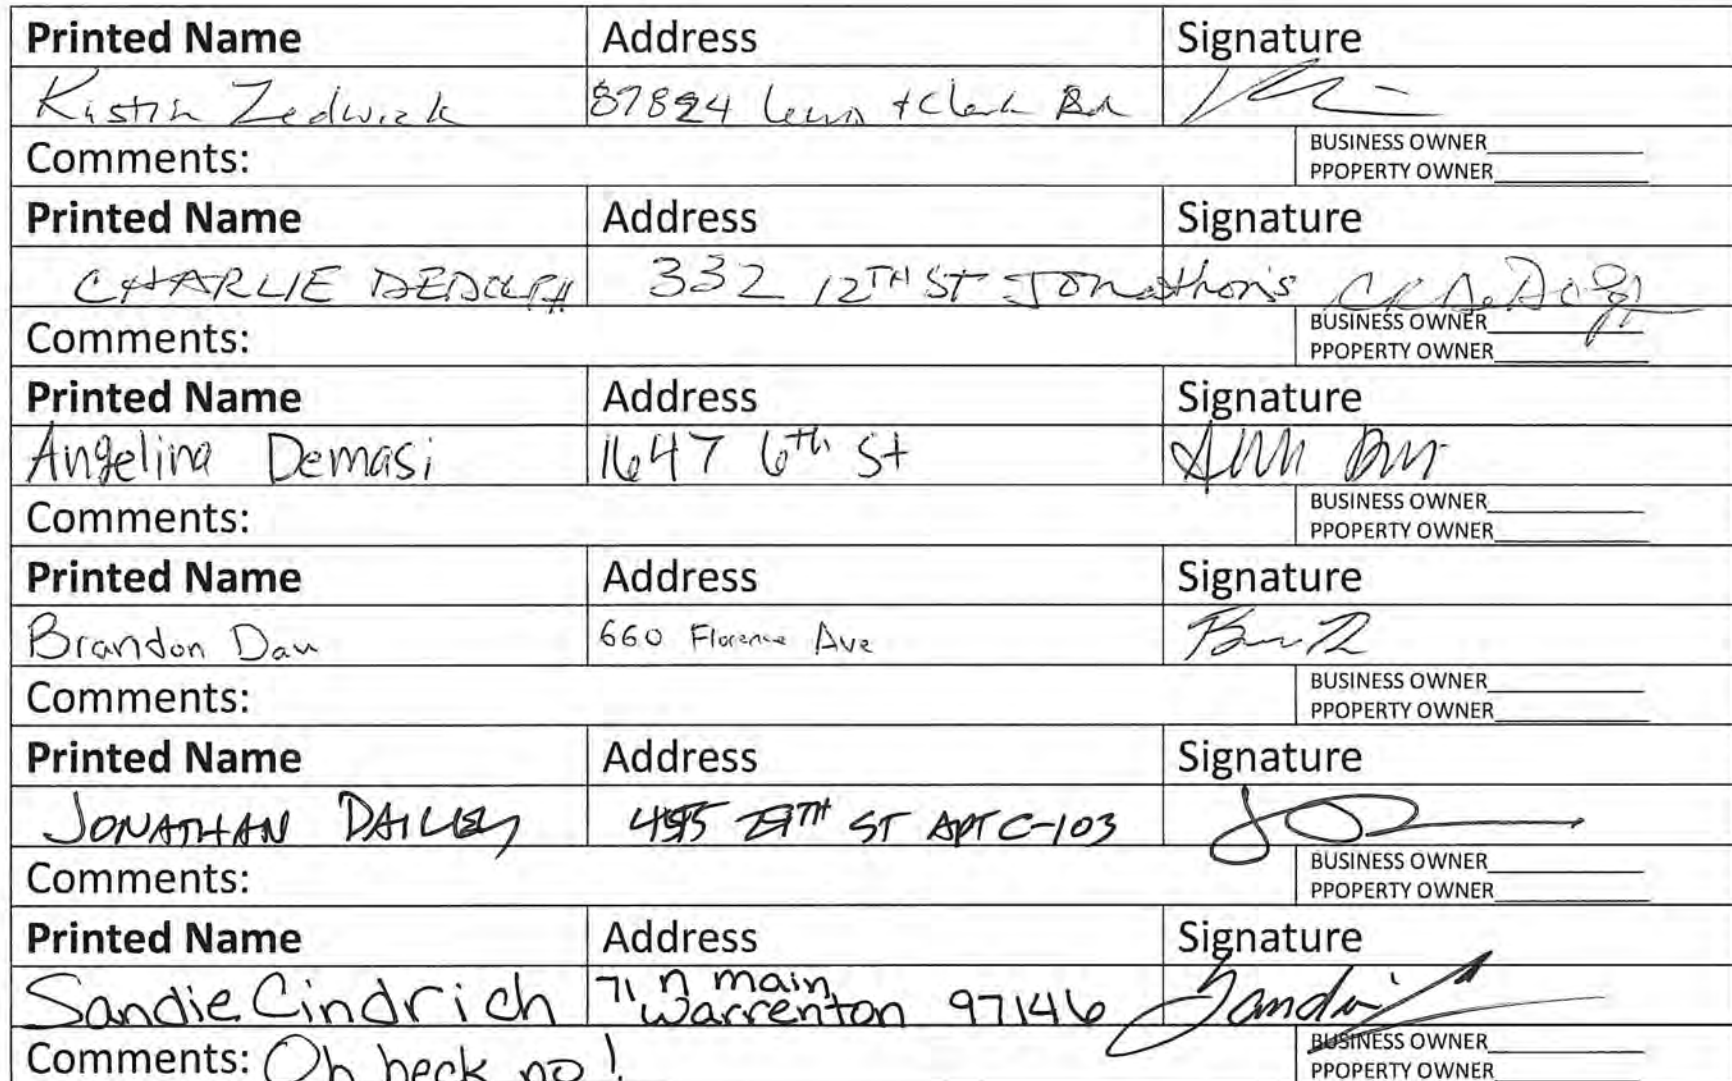 Printed Name Address Signature
Kristin Zedwick 87824 Lewis + Clark Rd
Comments: BUSINESS OWNER
PPOPERTY OWNER
Printed Name Address Signature
CHARLIE DEDOLPH 332 12TH ST Jonathon's
Comments: BUSINESS OWNER
PPOPERTY OWNER
Printed Name Address Signature
Angelina Demasi 1647 6th St
Comments: BUSINESS OWNER
PPOPERTY OWNER
Printed Name Address Signature
Brandon 660 Florence Ave
Comments: BUSINESS OWNER
PPOPERTY OWNER
Printed Name Address Signature
JONATHAN DAILEY ST APT C-103
Comments: BUSINESS OWNER
PPOPERTY OWNER
Printed Name Address Signature
Sandie Cindrich 71 n main, Sandi
warrenton 97146
Comments: Oh heck no! BUSINESS OWNER
PPOPERTY OWNER